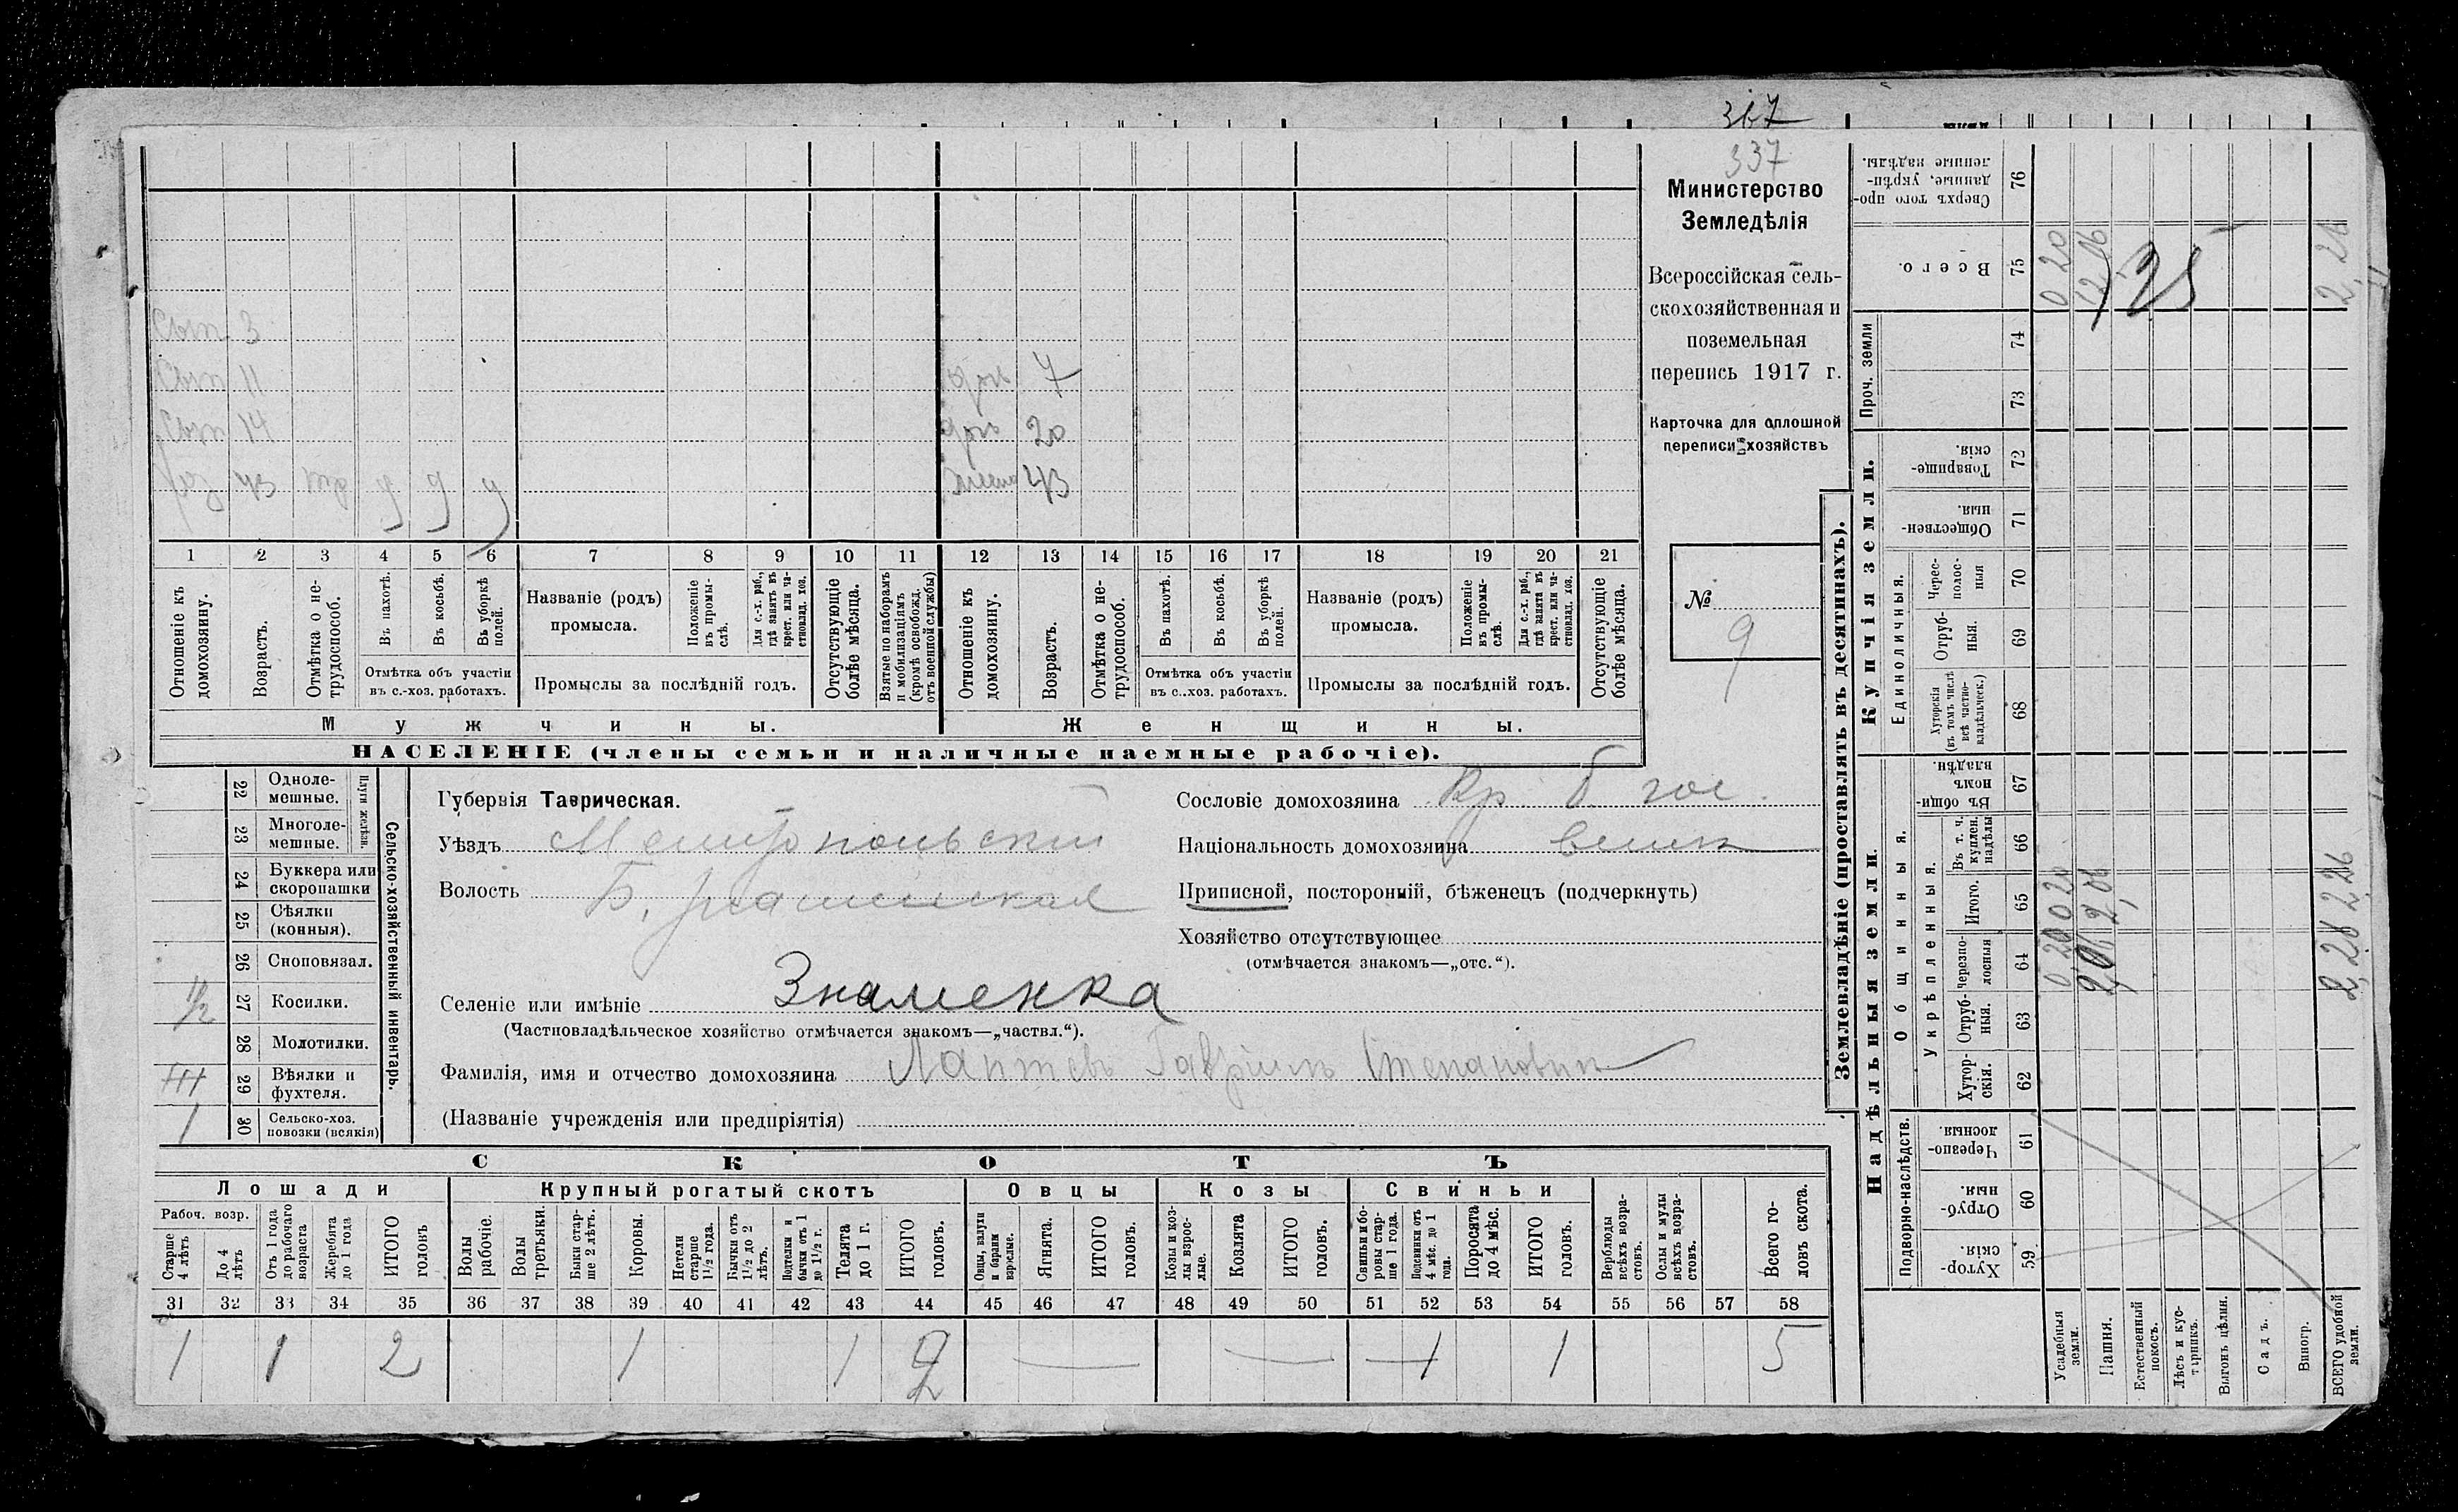 367
337
Министерство
Земледѣлія
Всероссійская сель-
скохозяйственная и
поземельная
перепись 1917 г.
Карточка для сплошной
переписи хозяйствъ
№
9
Сын 3
Сын 11
Сын 14
43
7
20
жена 43
1 2 3 4 5 6 7 8 9 10 11 12 13 14 15 16 17 18 19 20 21
Отношеніе къ домохозяину.
Возрастъ.
Отмѣтка о не-трудоспособ.
Въ пахотѣ.
Въ косьбѣ.
Въ уборкѣ полей.
Отмѣтка объ участіи
въ с.-хоз. работахъ.
Названіе (родъ)
промысла.
Положеніе въ промы-слѣ.
Для с.-х. раб., гдѣ занятъ въ крест. или ча-стновлад. хоз.
Промыслы за послѣдній годъ.
Отсутствующіе болѣе мѣсяца.
Взятые по наборамъ и мобилизаціямъ (кромѣ освобожд. отъ военной службы)
Отношеніе къ домохозяину.
Возрастъ.
Отмѣтка о не-трудоспособ.
Въ пахотѣ.
Въ косьбѣ.
Въ уборкѣ полей.
Отмѣтка объ участіи
въ с.-хоз. работахъ.
Названіе (родъ)
промысла.
Положеніе въ промы-слѣ.
Для с.-х. раб., гдѣ занята въ крест. или ча-стновлад. хоз.
Промыслы за послѣдній годъ.
Отсутствующіе болѣе мѣсяца.
Мужчины.
Женщины.
НАСЕЛЕНІЕ (члены семьи и наличные наемные рабочіе).
22 Одноле-мешные.
23 Многоле-мешные.
Плуги желѣзн.
24 Буккера или скоропашки
25 Сѣялки (конныя).
26 Сноповязал.
1/2 27 Косилки.
28 Молотилки.
29 Вѣялки и фухтеля.
1 30 Сельско-хоз. повозки (всякія)
Сельско-хозяйственный инвентарь.
Губернія Таврическая.
Уѣздъ Мелитопольскій
Волость
Селеніе или имѣніе Знаменка
(Частновладѣльческое хозяйство отмѣчается знакомъ—„частвл.“).
Фамилія, имя и отчество домохозяина Лаптевъ Гавріилъ Степанович
(Названіе учрежденія или предпріятія)
Сословіе домохозяина Кр. б. гос.
Національность домохозяина
Приписной, посторонній, бѣженецъ (подчеркнуть)
Хозяйство отсутствующее
(отмѣчается знакомъ—„отс.“).
СКОТЪ
Лошади
Крупный рогатый скотъ
Овцы
Козы
Свиньи
Рабоч. возр.
Старше 4 лѣтъ
До 4 лѣтъ
Отъ 1 года до рабочаго возраста
Жеребята до 1 года
ИТОГО головъ
Волы рабочіе.
Волы третьяки.
Быки стар-ше 2 лѣтъ.
Коровы.
Нетели старше 1 1/2 года.
Бычки отъ 1 1/2 до 2 лѣтъ.
Подтелки и бычки отъ 1 до 1 1/2 г.
Телята до 1 г.
ИТОГО головъ.
Овцы, валухи и бараны взрослые.
Ягнята.
ИТОГО головъ.
Козы и коз-лы взрос-лые.
Козлята
ИТОГО головъ.
Свиньи и бо-ровы стар-ше 1 года.
Подсвинки отъ 4 мѣс. до 1 года.
Поросята до 4 мѣс.
ИТОГО головъ.
Верблюды всѣхъ возра-стовъ.
Ослы и мулы всѣхъ возра-стовъ.
Всего го-ловъ скота.
31 32 33 34 35 36 37 38 39 40 41 42 43 44 45 46 47 48 49 50 51 52 53 54 55 56 57 58
1 1 2 1 1 2 — — 1 1 5
Землевладѣніе (проставлять въ десятинахъ).
Надѣльныя земли.
Купчія земли.
Проч. земли
Подворно-наслѣдств.
Общинныя.
Укрѣпленныя.
Единоличныя.
Хутор-скія. 59
Отруб-ныя. 60
Черезпо-лосныя. 61
Хутор-скія. 62
Отруб-ныя. 63
черезпо-лосныя 64
Итого. 65
Въ т. ч. куплен. надѣлы 66
Въ общи-номъ владѣн. 67
Хуторскія (въ томъ числѣ всѣ частно-владѣльческ.) 68
Отруб-ныя. 69
Черес-полос-ныя 70
Обществен-ныя. 71
Товарище-скія. 72
73
74
Всего. 75
Сверхъ того про-данные, укрѣп-ленные надѣлы. 76
Усадебныя земли.
0 20 0 20
0 20
Пашня.
Естественный покосъ.
Лѣсъ и кус-тарникъ.
Выгонъ цѣлин.
Садъ.
Виногр.
ВСЕГО удобной земли.